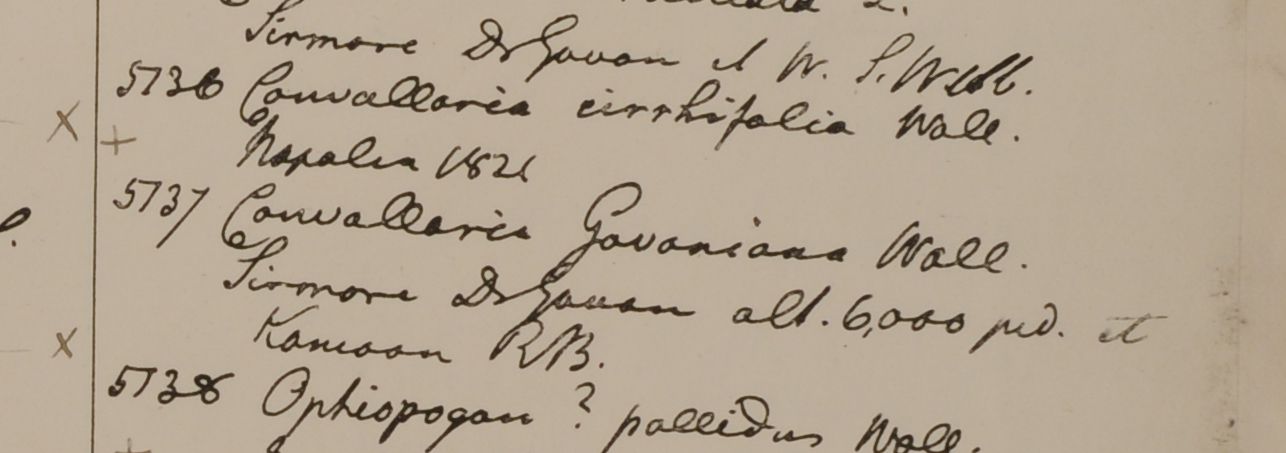 Sirmore Dr Govan et W. S. Webb.
5136 Convallaria cirrhifolia Wall.
Napalia 1821
5137 Convallaria Govaniana Wall.
Sirmore Dr Govan alt. 6,000 ped. et
Kamaon R.B.
5138 Ophiopogon ? pallidus Wall.